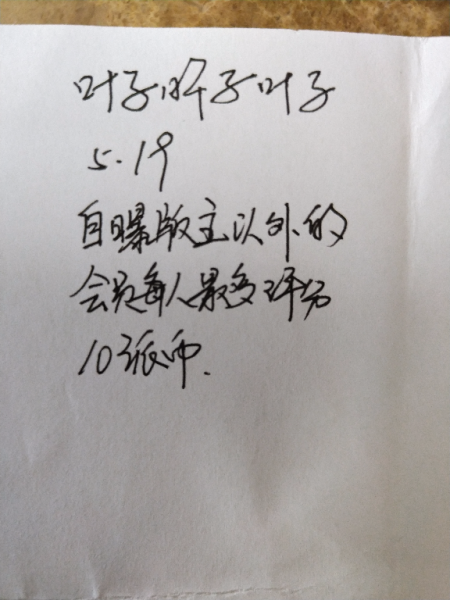 叶子叶子叶子
5.19
自曝版主以外的
会员每人最多评分
10张币.